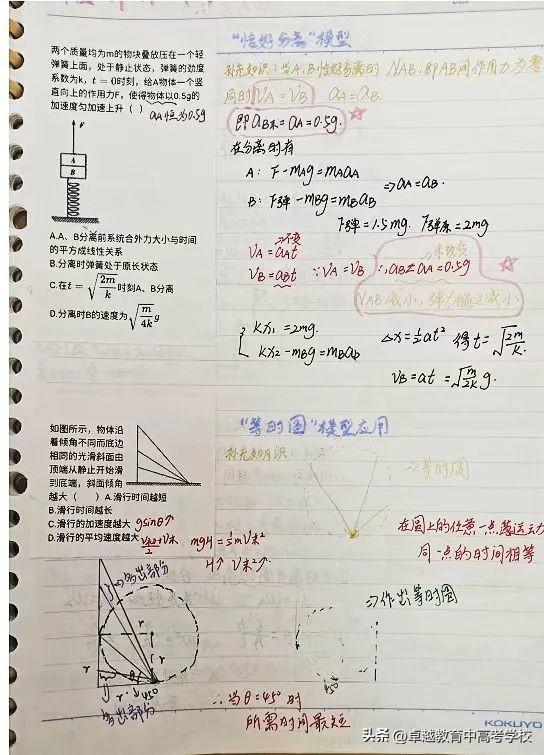 "恰好分离"模型
两个质量均为m的物块叠放压在一个轻
弹簧上面，处于静止状态，弹簧的劲度
系数为k，t = 0时刻，给A物体一个竖
直向上的作用力F，使得物体以0.5g的
加速度匀加速上升（ ）aA恒为0.5g
F
A
B
A.A、B分离前系统合外力大小与时间
的平方成线性关系
B.分离时弹簧处于原长状态
C.在t = √(2m/k) 时刻A、B分离
D.分离时B的速度为 √(m/4k) g
补充知识：当A、B恰好分离时 NAB，即AB间作用力为零
同时 VA = VB aA = aB.
即aB末 = aA = 0.5g.
在分离时有
A: F - mAg = mAaA
⇒ aA = aB.
B: F弹 - mBg = mBaB
F弹 = 1.5mg. F弹原 = 2mg
⇒不变
VA = aAt
VB = aBt ∵ VA = VB ∴ aB末 aA = 0.5g
NAB减小，弹力随之减小
{ kx1 = 2mg.
kx2 - mBg = mBaB
Δx = ½at² 得t = √(2m/k).
VB = at = √(m/2k) g.
"等时圆"模型应用
如图所示，物体沿
着倾角不同而底边
相同的光滑斜面由
顶端从静止开始滑
到底端，斜面倾角
越大（ ）A.滑行时间越短
B.滑行时间越长
C.滑行的加速度越大 gsinθ↑
D.滑行的平均速度越大
补充知识：
⇒等时圆
在圆上的任意一点
同一点的时间相等
mgH = ½mV末²
H↑ V末²↑.
⇒多出部分
r
r
r
r
θ
45°
多出部分
⇒作出等时圆
∴当θ = 45°时
所需时间最短
KOKUYO
头条 @卓越教育中高考学校